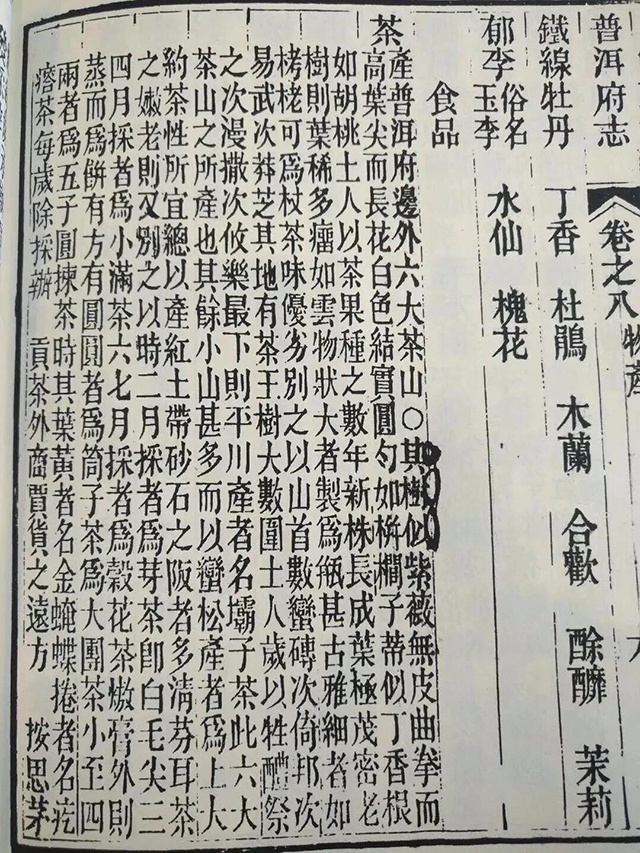 普洱府志 卷之八 物產 六
鐵線牡丹 丁香 杜鵑 木蘭 合歡 酴醾 茉莉
郁李俗名玉李 水仙 槐花
食品
茶產普洱府邊外六大茶山○其樹似紫薇無皮曲拳而
高葉尖而長花白色結實圓勺如栟櫚子蒂似丁香根
如胡桃土人以茶果種之數年新株長成葉極茂密老
樹則葉稀多瘤如雲物狀大者製爲瓶甚古雅細者如
栲栳可爲杖茶味優劣別之以山首數蠻磚次倚邦次
易武次莽芝其地有茶王樹大數圍土人歲以牲醴祭
之次漫撒次攸樂最下則平川產者名壩子茶此六大
茶山之所產也其餘小山甚多而以蠻松產者爲上大
約茶性所宜總以產紅土帶砂石之阪者多清芬耳茶
之嫩老則又別之以時二月採者爲芽茶卽白毛尖三
四月採者爲小滿茶六七月採者爲穀花茶熬膏外則
蒸而爲餅有方有圓圓者爲筒子茶爲大團茶小至四
兩者爲五子圓揀茶時其葉黃者名金蝶捲者名疙
瘩茶每歲除採辦 貢茶外商賈貨之遠方 按思茅